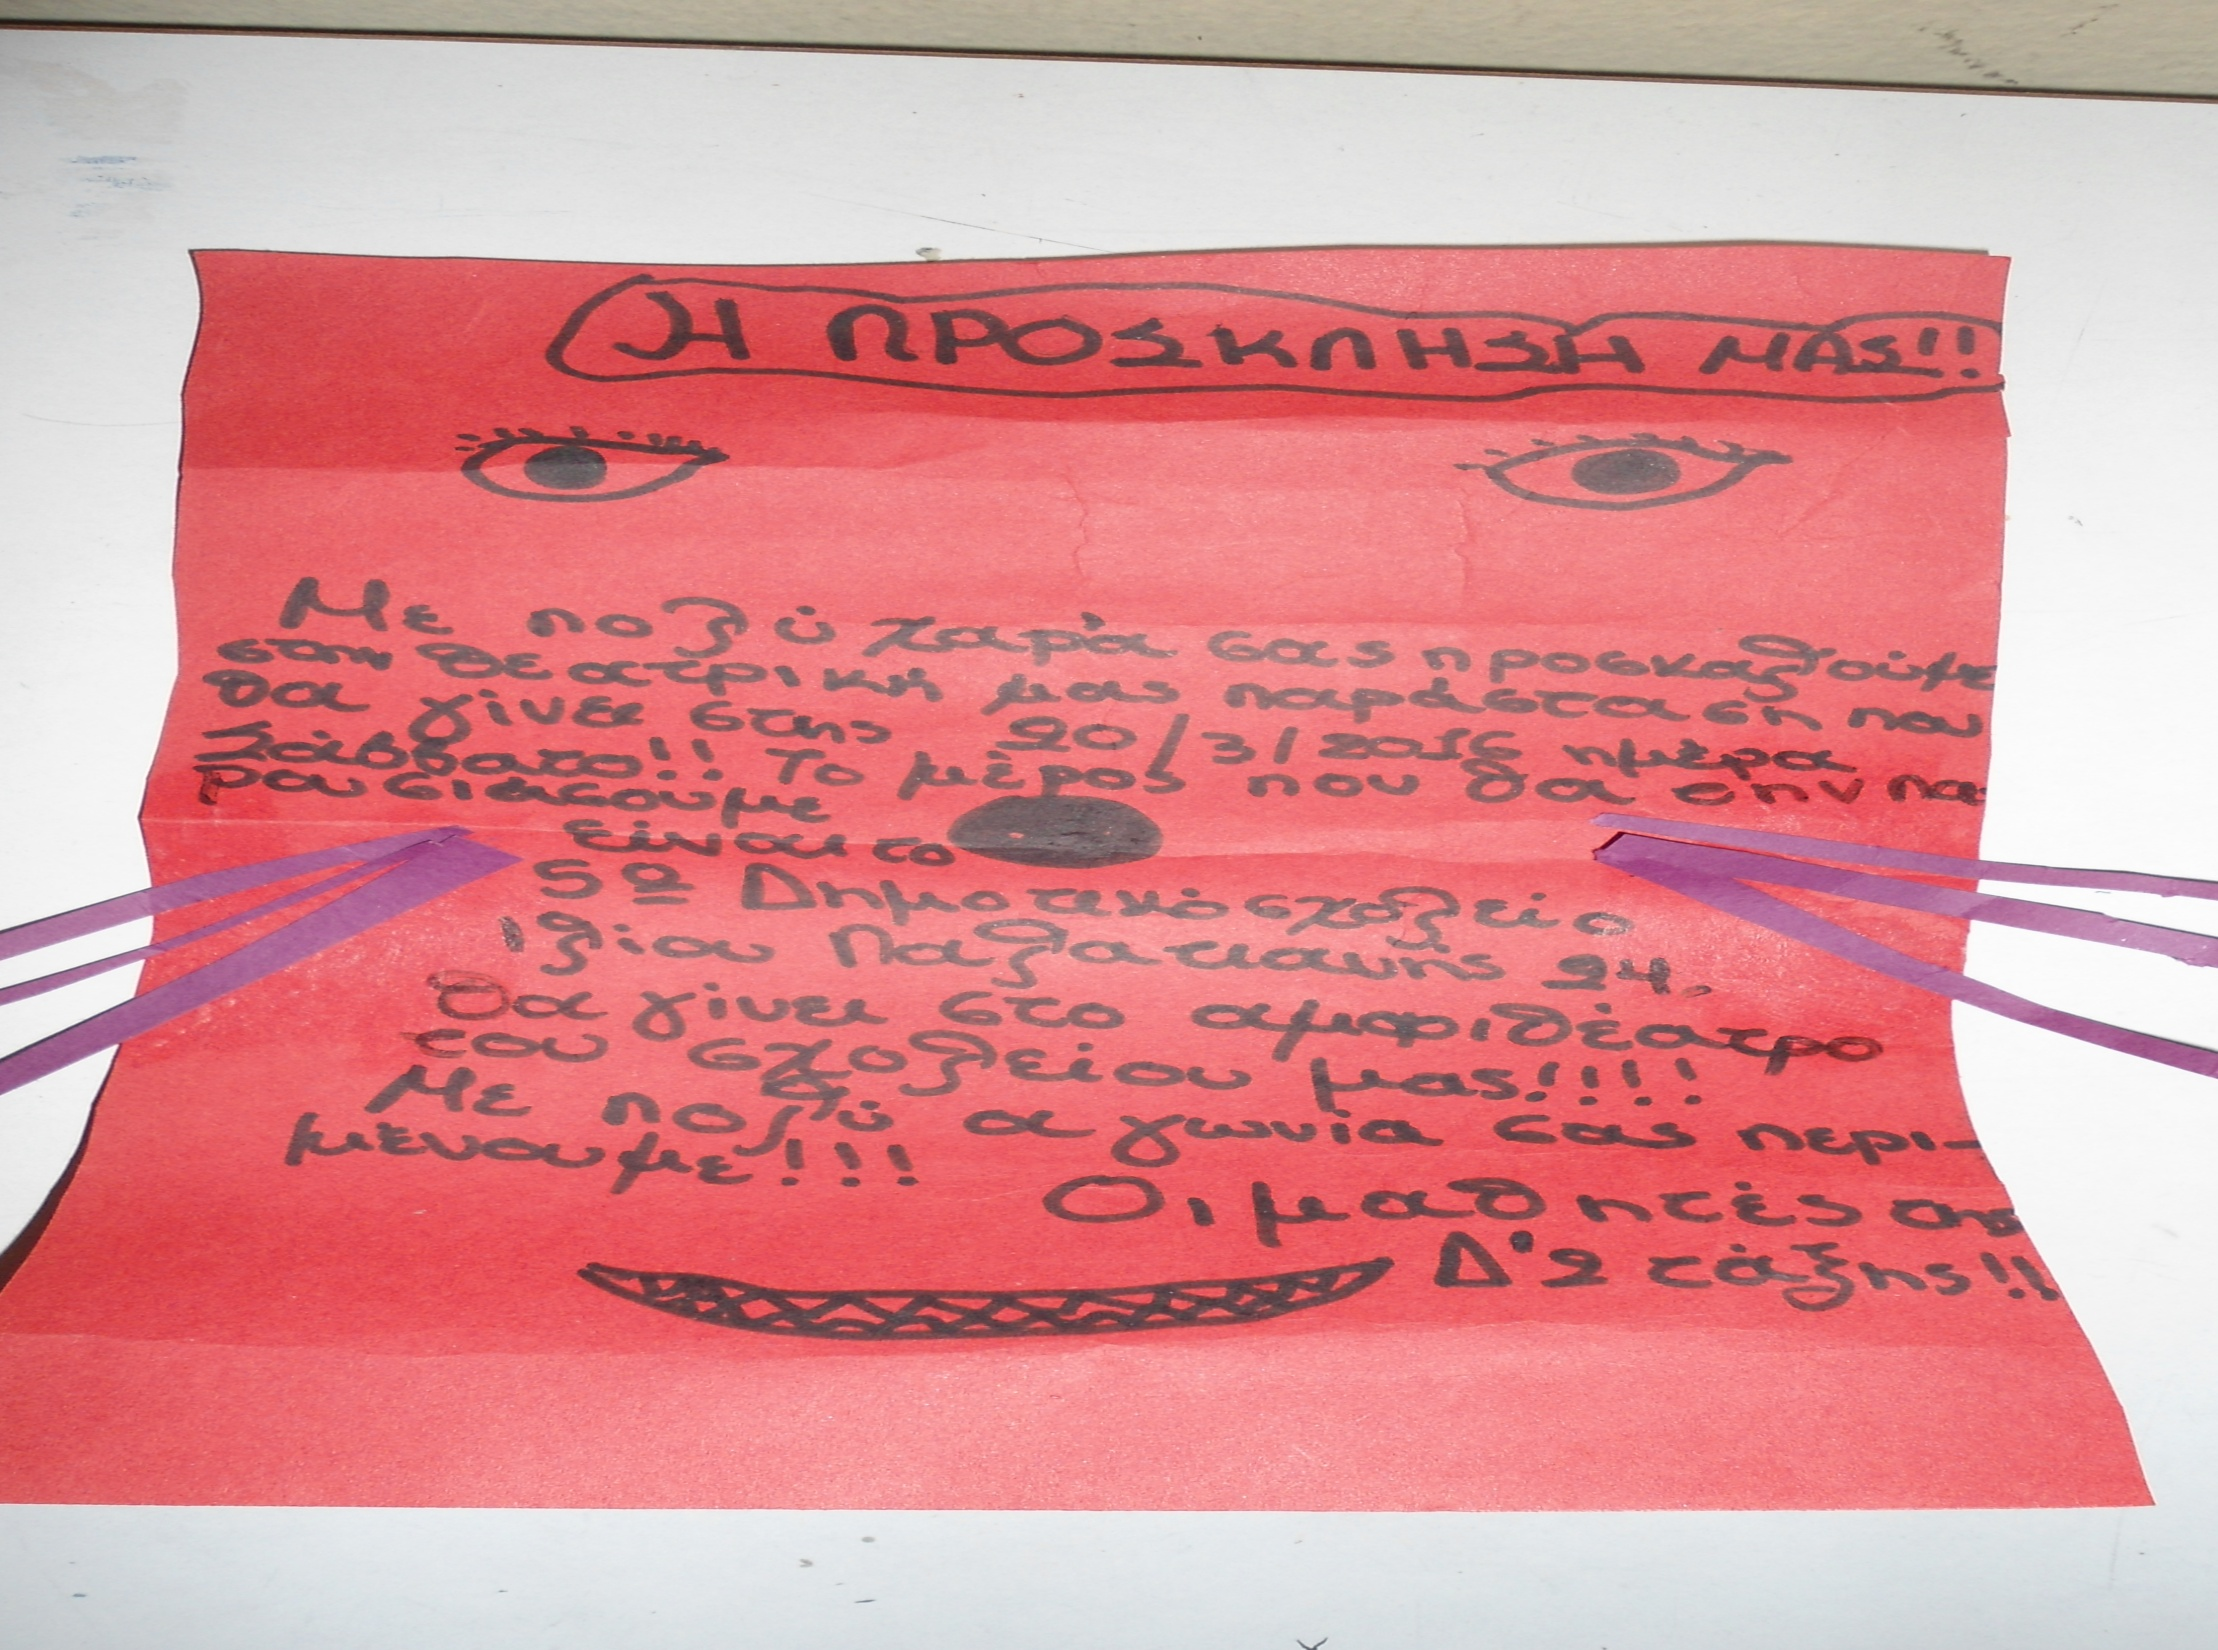 Η ΠΡΟΣΚΛΗΣΗ ΜΑΣ!!
Με πολύ χαρά σας προσκαλούμε
στην θεατρική μας παράσταση που
θα γίνει στης 20/3/2016 ημέρα
Σάββατο!! Το μέρος που θα την πα
ρουσιάσουμε
είναι το
5º Δημοτικό σχολείο
Ιλίου Παλατιανής 24.
Θα γίνει στο αμφιθέατρο
του σχολείου μας!!!!
Με πολύ αγωνία σας περι-
μένουμε!!!
Οι μαθητές της
Δ'2 τάξης!!